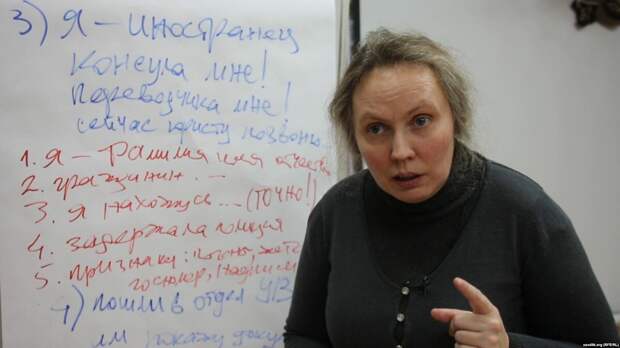 3) Я – иностранец
Консула мне!
Переводчика мне!
сейчас юристу позвоню
1. Я – фамилия имя отчество
2. гражданин ...
3. Я нахожусь ... (точно!)
4. задержала полиция
5. признаки: погоны, жетон
госномер, надписи
4) пошли в отдел УВД
покажу